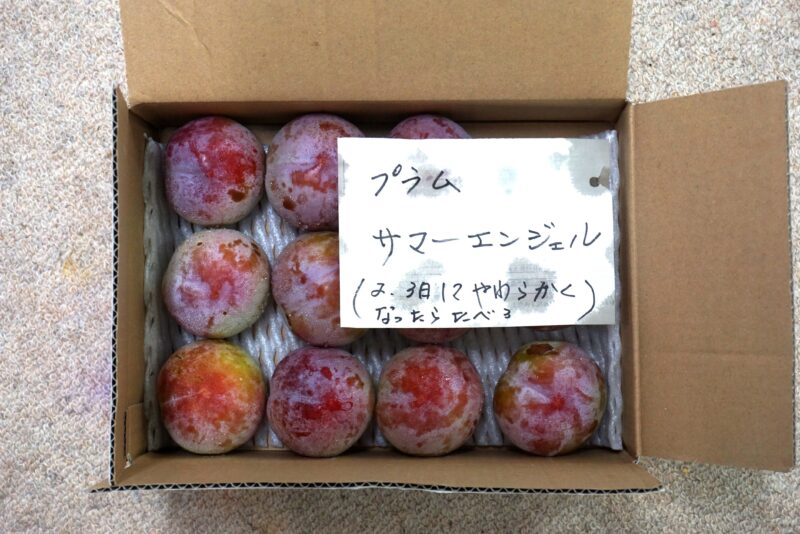 プラム
サマーエンジェル
(2.3日でやわらかく
なったらたべる)